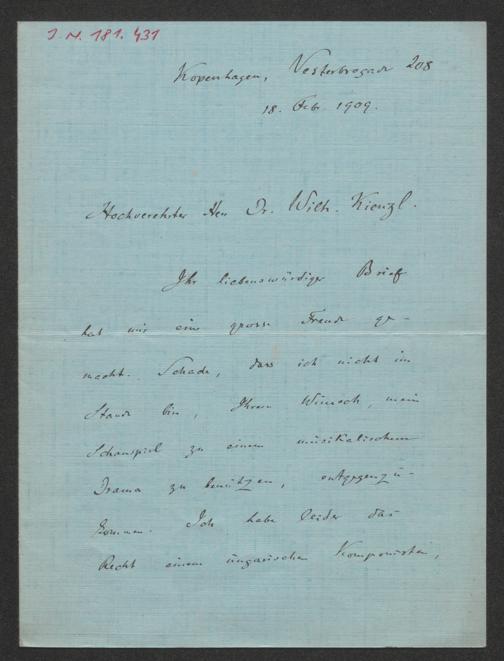 I.N. 181.431
Kopenhagen, Vesterbrogade 208
18. Febr. 1909.
Hochverehrter Herr Dr. Wilh. Kienzl.
Ihr liebenswürdiger Brief
hat mir eine grosse Freude ge-
macht. Schade, dass ich nicht im
Stande bin, Ihrem Wunsch, mein
Schauspiel zu einem musikalischen
Drama zu benützen, entgegenzu-
kommen. Ich habe leider das
Recht einem ungarischen Komponisten,